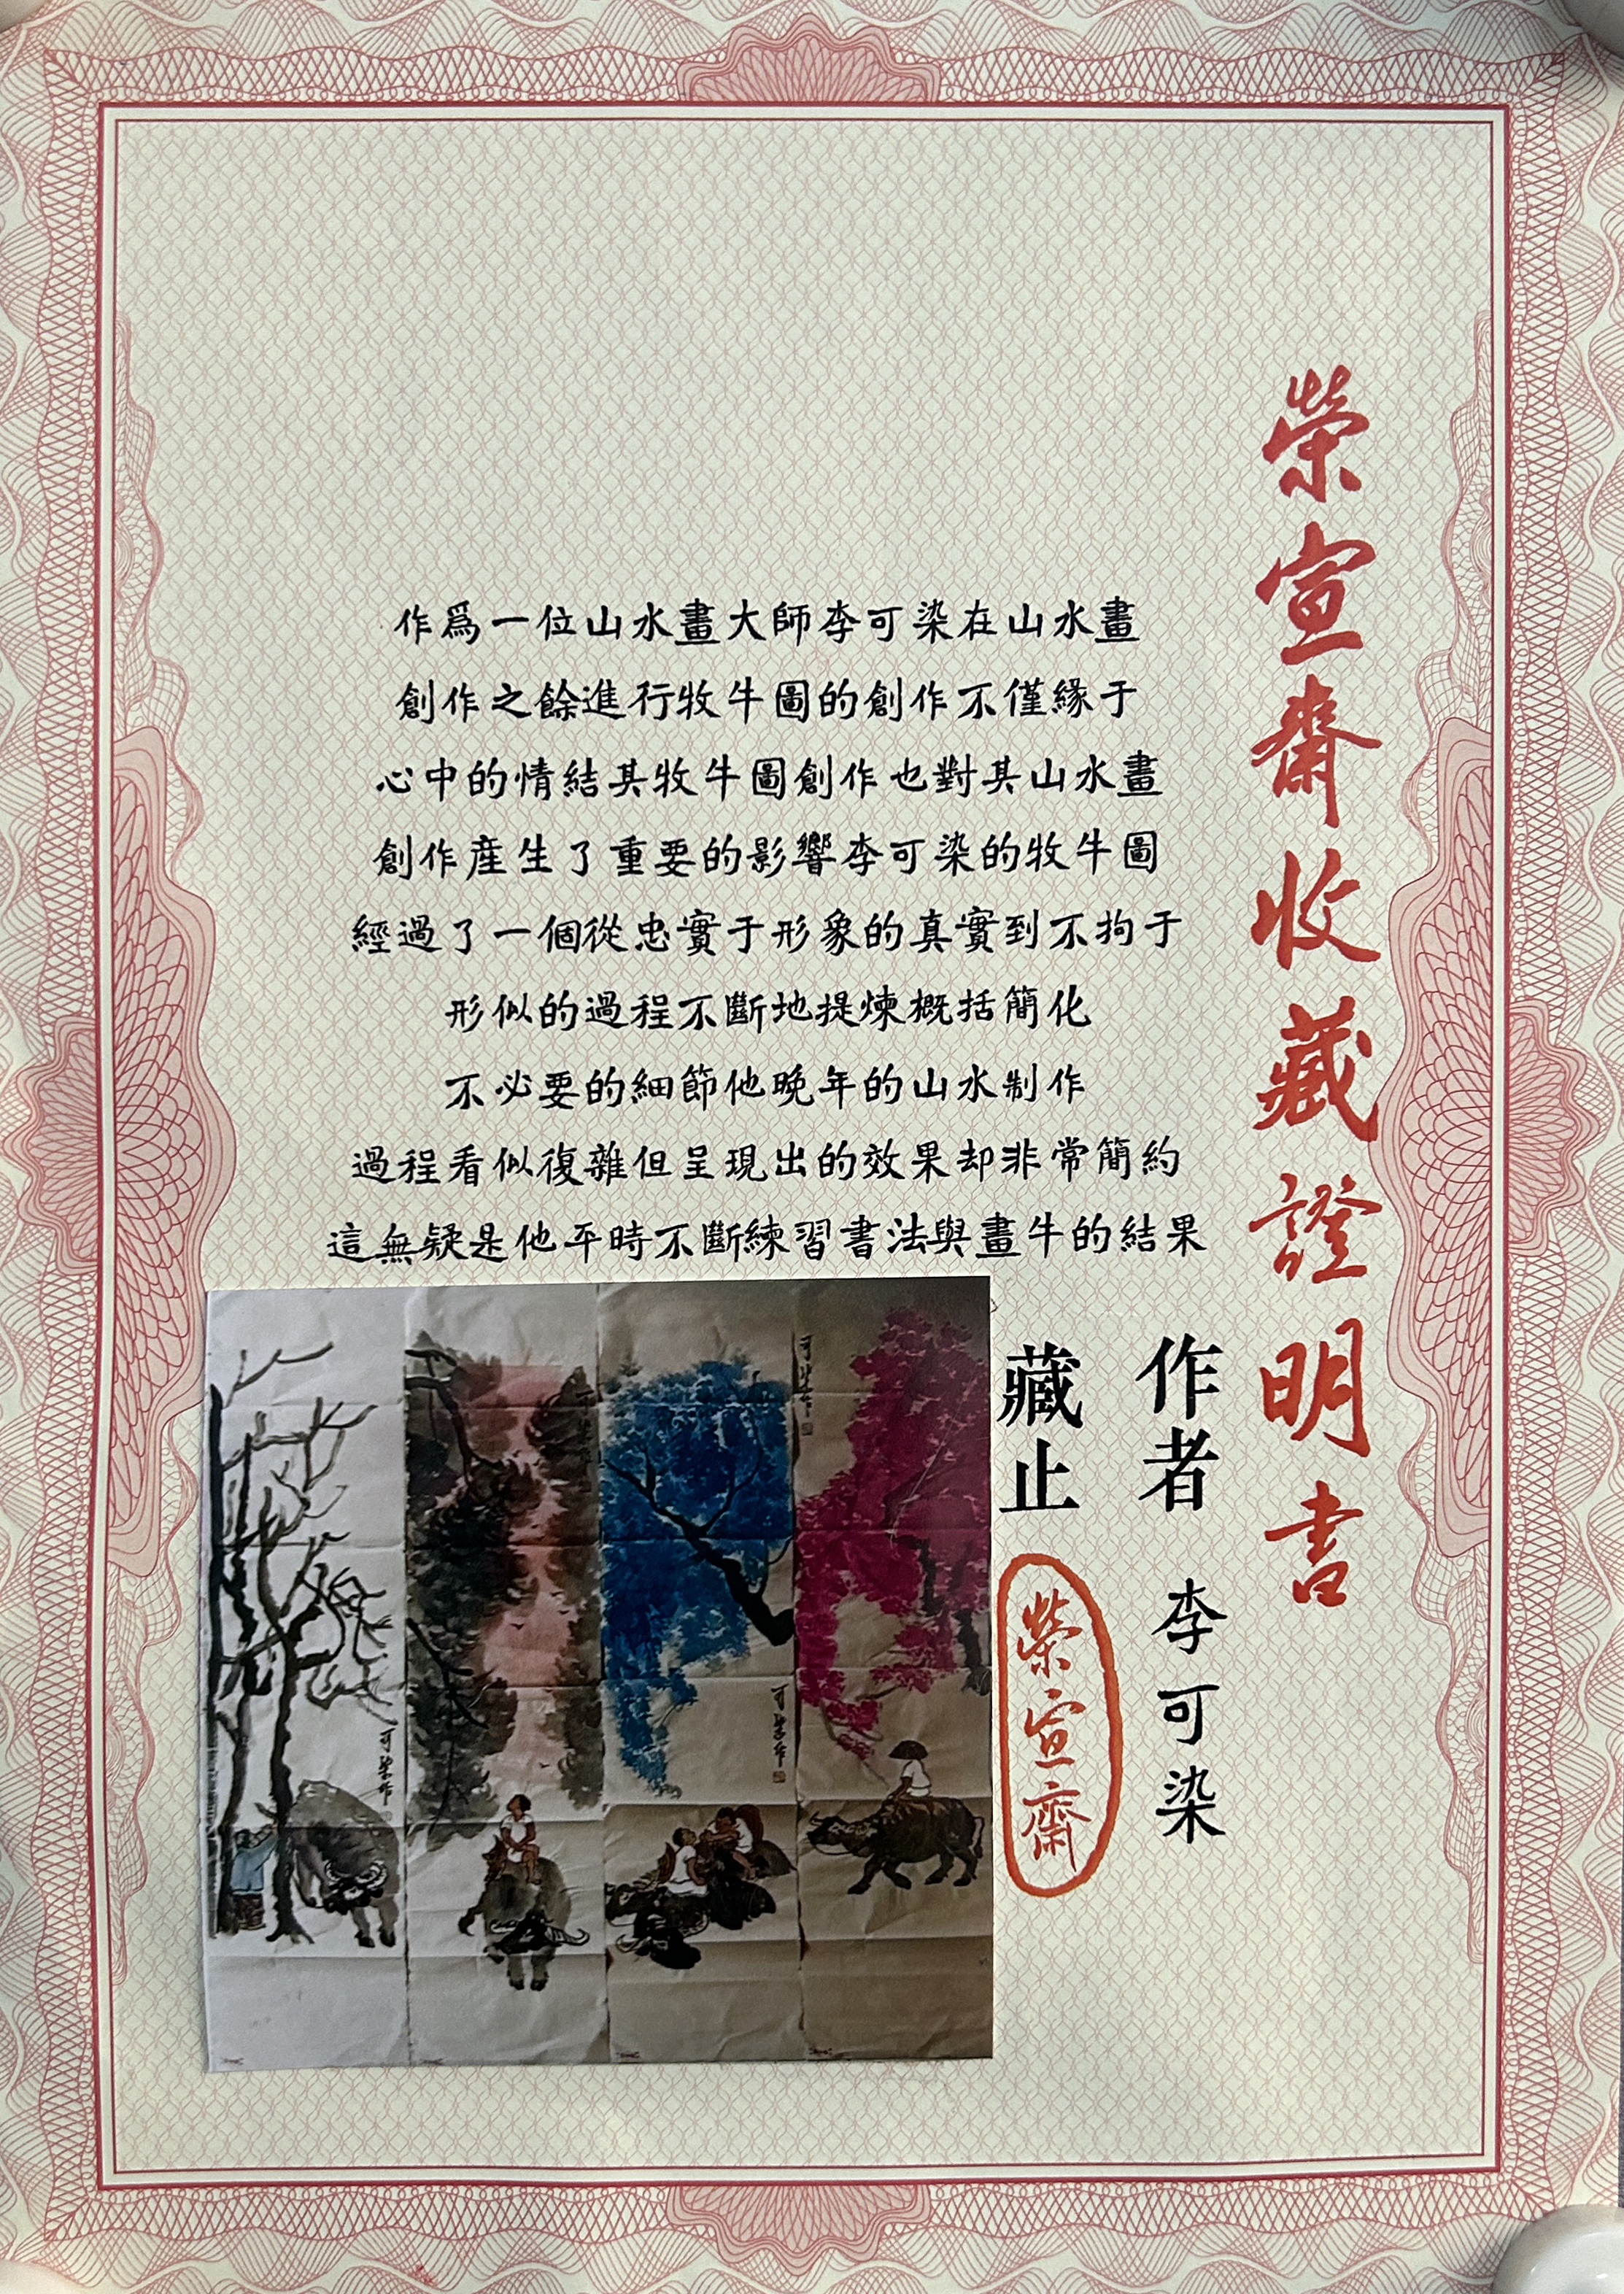 榮宣齋收藏證明書
作爲一位山水畫大師李可染在山水畫
創作之餘進行牧牛圖的創作不僅緣于
心中的情結其牧牛圖創作也對其山水畫
創作産生了重要的影響李可染的牧牛圖
經過了一個從忠實于形象的真實到不拘于
形似的過程不斷地提煉概括簡化
不必要的細節他晚年的山水制作
過程看似復雜但呈現出的效果却非常簡約
這無疑是他平時不斷練習書法與畫牛的結果
作者 李可染
藏止 榮宣齋
可染作
可染作
可染作